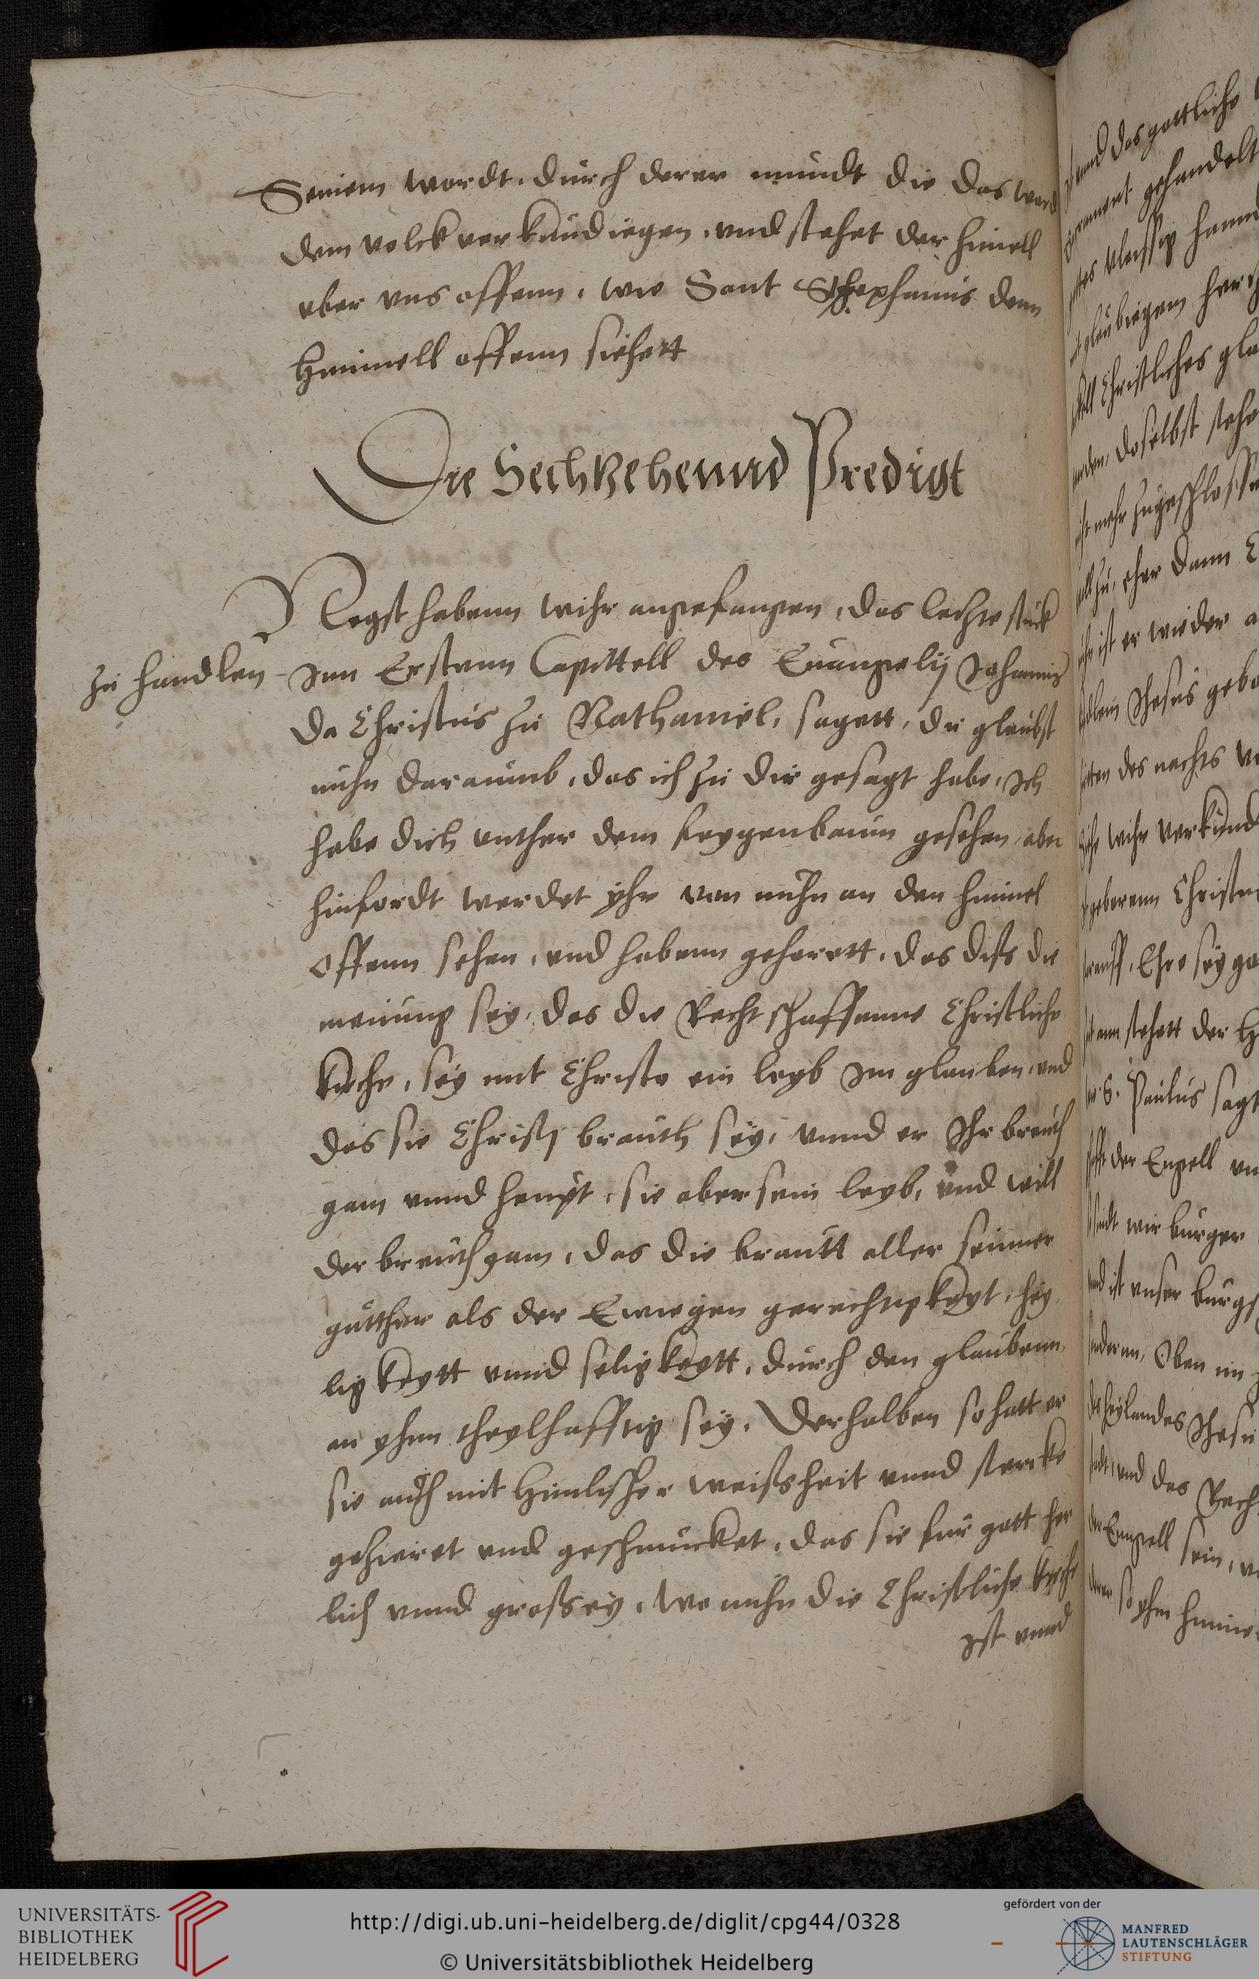 Seinem wordt, durch derer mundt die das word
dem volck verkundiegen, und stehet der himell
uber uns offenn, wie Sant Stephanus denn
himmell offenn siehett
Die Sechtzehennd Predigt
Negst habenn wihr angefangen, das lechte stuck
zu handlen
Inn Erstenn Capittell des Euangelij Johannis
da Christus zu Nathaniel, sagett, du glaubst
nuhn daraumb, das ich zu dir gesagt habe, Ich
habe dich unther dem feygenbaum gesehen, aber
hinfordt werdet yhr von nuhn an den himel
offenn sehen, und habenn gehorett, das diß die
meinung sey, das die Rechtschaffenne Christliche
kirche, sey mit Christo ein leyb Im glauben, und
das sie Christi brauth sey, unnd er Ihr breuth
gam unnd heupt, sie aber sein leyb, und will
der breuthgam, das die brautt aller seinner
gutther als der Ewiegen gerechtigkeyt, hey
ligkeytt unnd seligkeytt, durch den glaubenn
an yhnn theylhafftig sey, Derhalben so hatt er
sie auch mit himlischer weißheit unnd stercke
gezieret und geschmucket, das sie fur gott her
lich unnd groß sey, wo nuhn die Christliche kirche
ist unnd
und das gottliche
gehandelt
vleissig
glaubiegen
Christliches
daselbst stehe
mehr zugeschlossen
zu, eher dann
ist er wieder
Jhesus gebo
des nachts
wihr verkund
geborenn Christu
Ehre sey go
stehett der
S. Paulus sagt
der Engell
wir burger
ist unser burgs
Oben im
heylandes Jhesu
und das Rech
Engell sein
so yhm himme
UNIVERSITÄTS-
BIBLIOTHEK
HEIDELBERG
http://digi.ub.uni-heidelberg.de/diglit/cpg44/0328
© Universitätsbibliothek Heidelberg
gefördert von der
MANFRED
LAUTENSCHLÄGER
STIFTUNG